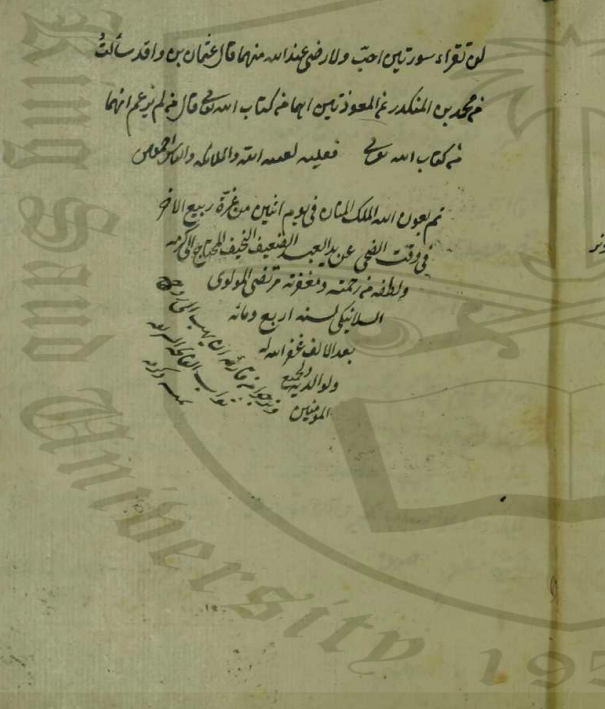 لن تقراء سورتين احبّ ولا ارضى عند الله منهما قال عثمان بن واقد سألتُ
من محمد بن المنكدر عن المعوذتين اهما من كتاب الله تعالى قال من لم يزعم انهما
من كتاب الله تعالى فعليه لعنه الله والملائكه والناس اجمعين
تم بعون الله الملك المنان فى يوم اثنين من غرّة ربيع الاخر
فى وقت الضحى عن يد العبد الضعيف النحيف المحتاج الى كرمه
ولطفه من رحمته ومغفرته مرتضى المولوى
السلانيكى لسنه اربع ومائه
بعد الالف غفر الله له
ولوالديه ولجميع
المؤمنين
King Saud University 195